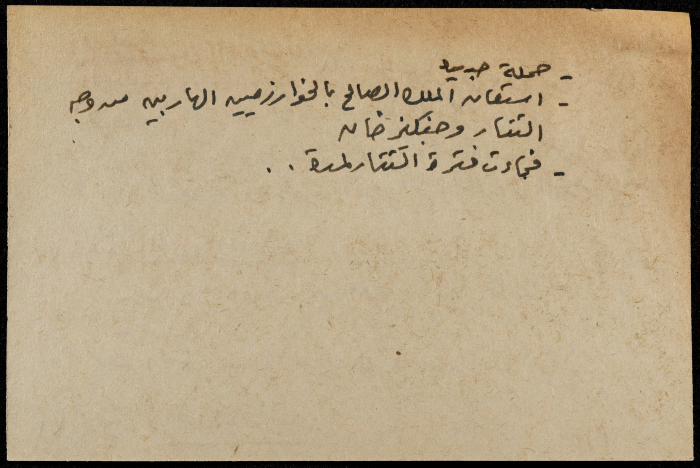 - حملة جديدة
- استعان الملك الصالح بالخوارزميين الهاربين من وجه
التتار وجنكيز خان
- فجاءت فترة التتار لمدة . .